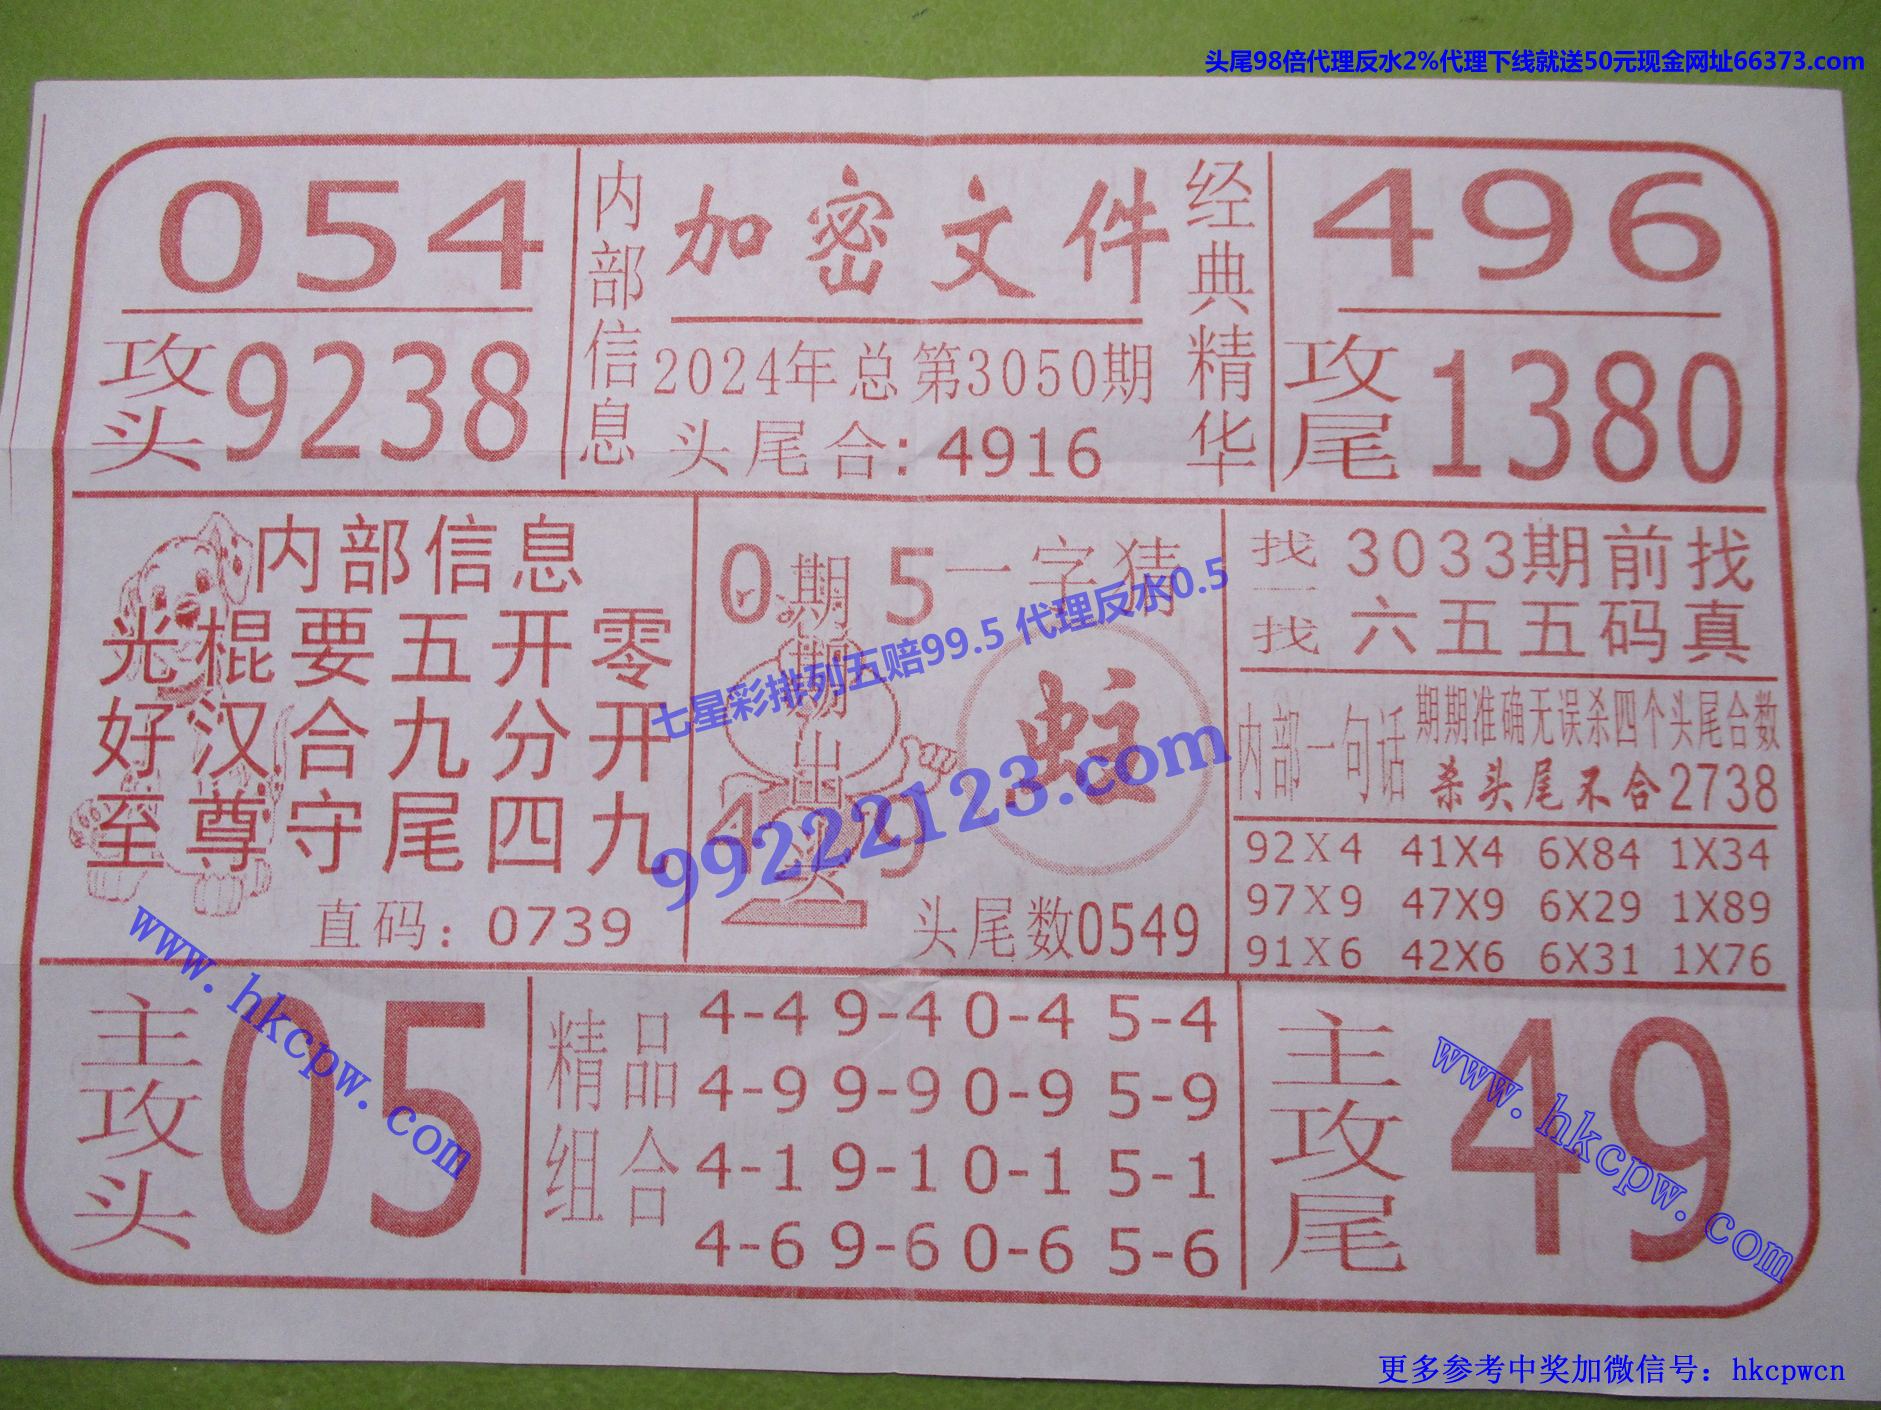 头尾98倍代理反水2%代理下线就送50元现金网址66373.com
054
攻头 9238
内部信息
加密文件
2024年总第3050期
头尾合: 4916
经典精华
496
攻尾 1380
内部信息
光棍要五开零
好汉合九分开
至尊守尾四九
直码: 0739
0 5 一字猜
期期出头
蛀
4 9
头尾数0549
找一找
3033期前找
六五五码真
内部一句话
期期准确无误杀四个头尾合数
杀头尾不合2738
92X4 41X4 6X84 1X34
97X9 47X9 6X29 1X89
91X6 42X6 6X31 1X76
七星彩排列五赔99.5 代理反水0.5
99222123.com
主攻头 05
精品组合
4-4 9-4 0-4 5-4
4-9 9-9 0-9 5-9
4-1 9-1 0-1 5-1
4-6 9-6 0-6 5-6
主攻尾 49
www.hkcpw.com
www.hkcpw.com
更多参考中奖加微信号: hkcpwcn